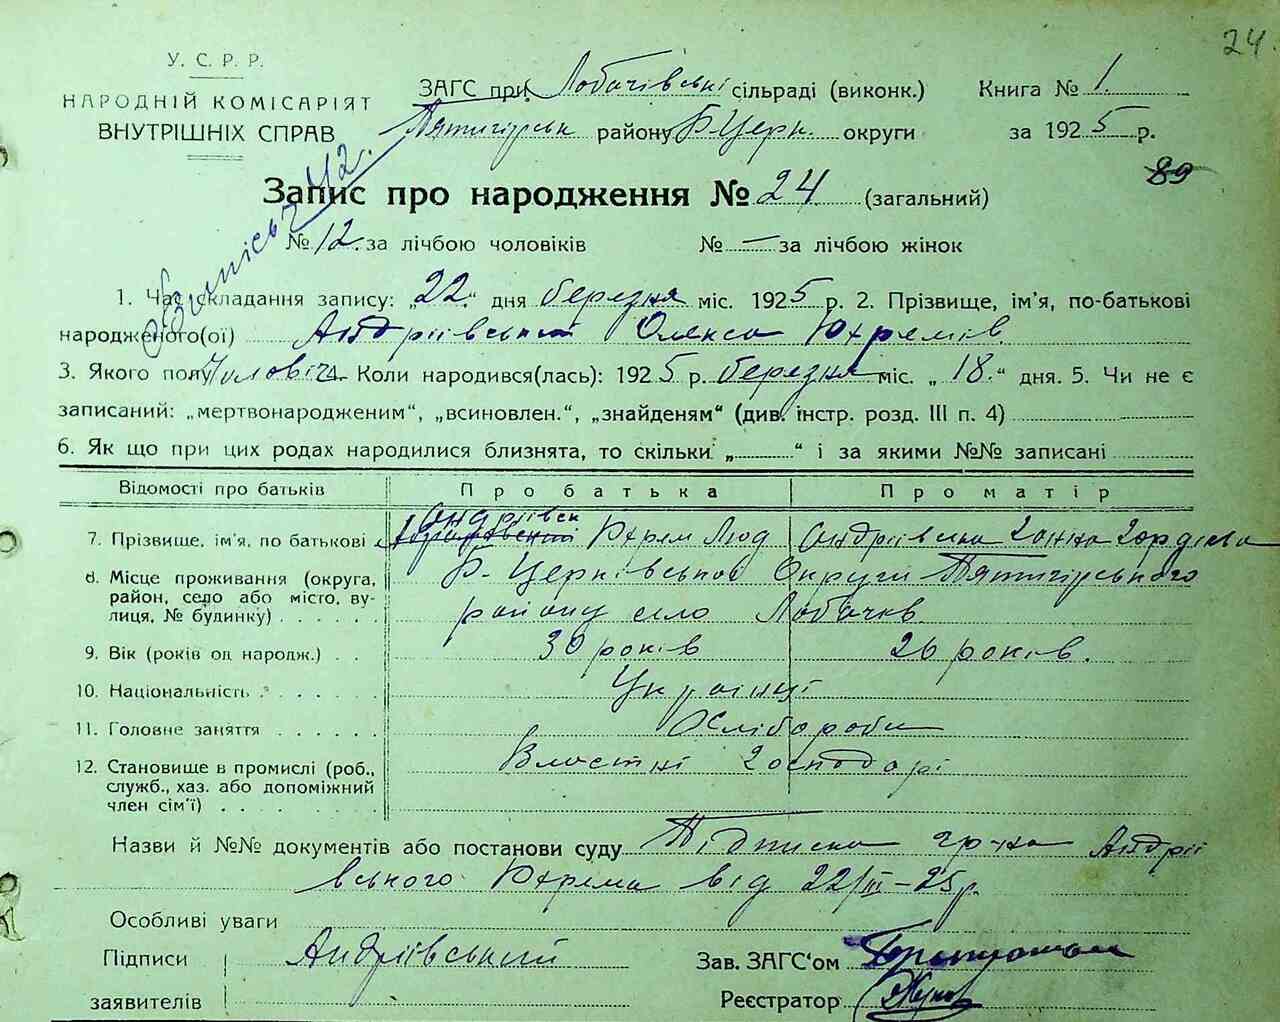 24
У. С. Р. Р.
НАРОДНІЙ КОМІСАРІЯТ
ВНУТРІШНІХ СПРАВ
ЗАГС при Лобачівські сільраді (виконк.) Книга № 1.
Пятигірськ району Б-Церк. округи за 1925 р.
89
Запис про народження № 24 (загальний)
№ 12. за лічбою чоловіків № — за лічбою жінок
1. Час складання запису: „22.“ дня березня міс. 1925 р. 2. Прізвище, ім’я, по-батькові
народженого(ої) Андріївський Олекса Юхремів.
3. Якого полу Чоловіч. Коли народився(лась): 1925 р. березня міс. „18.“ дня. 5. Чи не є
записаний: „мертвонародженим“, „всиновлен.“, „знайденям“ (див. інстр. розд. III п. 4)
6. Як що при цих родах народилися близнята, то скільки „ “ і за якими №№ записані
Відомості про батьків Про батька Про матір
7. Прізвище, ім’я, по батькові Андріївськ Юхрем Люд Андріївська Ганна Гордієва
8. Місце проживання (округа, район, село або місто, вулиця, № будинку) Б-Церківської Округи Пятигірського
району село Лобачів.
9. Вік (років од народж.) 30 років 26 років.
10. Національність Українці
11. Головне заняття Хлібороби
12. Становище в промислі (роб., служб., хаз. або допоміжний член сім’ї) Власні господарі
Назви й №№ документів або постанови суду Підписка гр-на Андрії
вського Юхрема від 22/III-25р.
Особливі уваги
Підписи Андріївський Зав. ЗАГС‘ом
заявителів Реєстратор